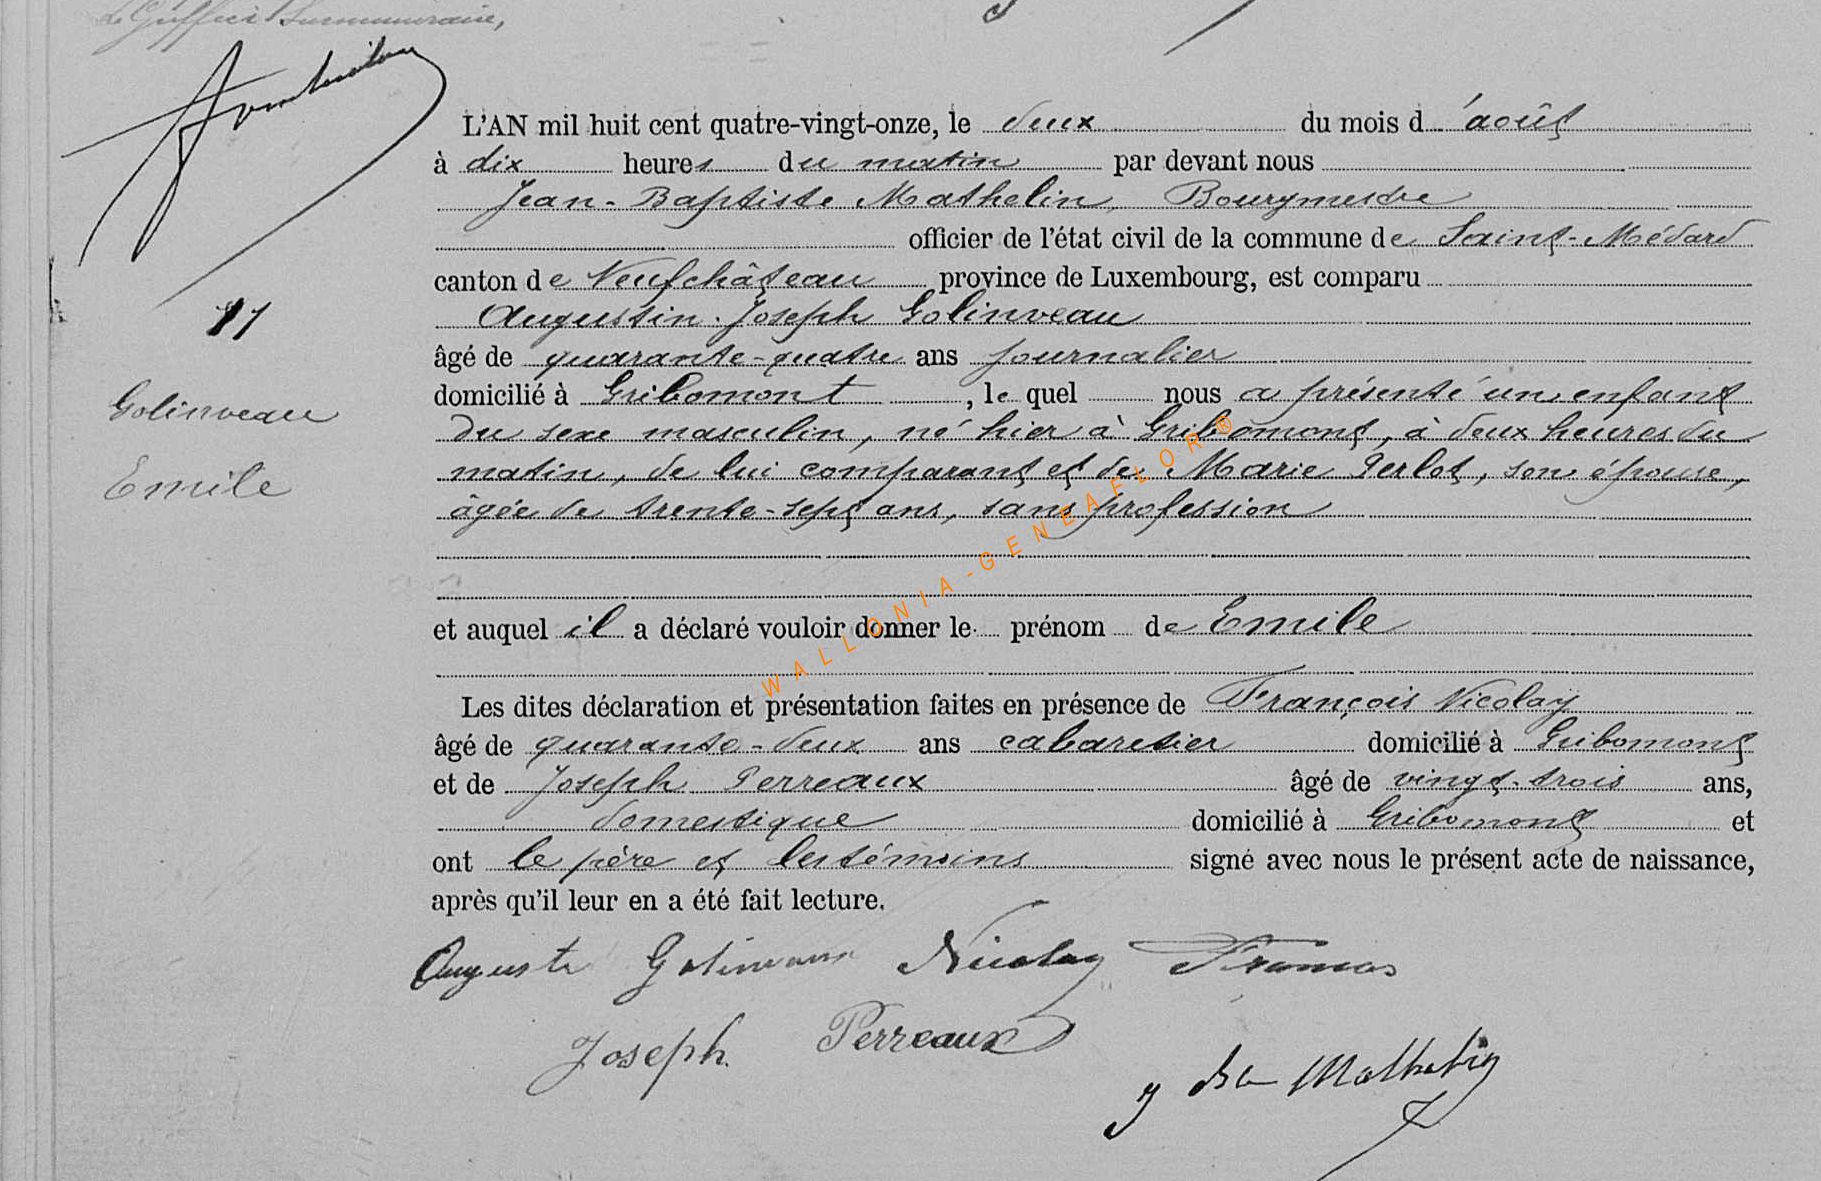 Le Greffier Surnuméraire,
L'AN mil huit cent quatre-vingt-onze, le deux du mois d'août
à dix heures du matin par devant nous
Jean-Baptiste Mathelin, Bourgmestre
officier de l'état civil de la commune de Saint-Médard
canton de Neufchâteau province de Luxembourg, est comparu
Augustin-Joseph Golinveau
âgé de quarante-quatre ans journalier
domicilié à Gribomont, le quel nous a présenté un enfant
du sexe masculin, né hier à Gribomont, à deux heures du
matin, de lui comparant et de Marie Perlot, son épouse,
âgée de trente-sept ans, sans profession
et auquel il a déclaré vouloir donner le prénom de Emile
Les dites déclaration et présentation faites en présence de François Nicolay
âgé de quarante-deux ans cabaretier domicilié à Gribomont
et de Joseph Perreaux âgé de vingt-trois ans,
domestique domicilié à Gribomont et
ont le père et les témoins signé avec nous le présent acte de naissance,
après qu'il leur en a été fait lecture.
11
Golinveau
Emile
Auguste Golinveau Nicolay Francois
Joseph Perreaux
J Bte Mathelin
WALLONIA-GENEAFLOR®